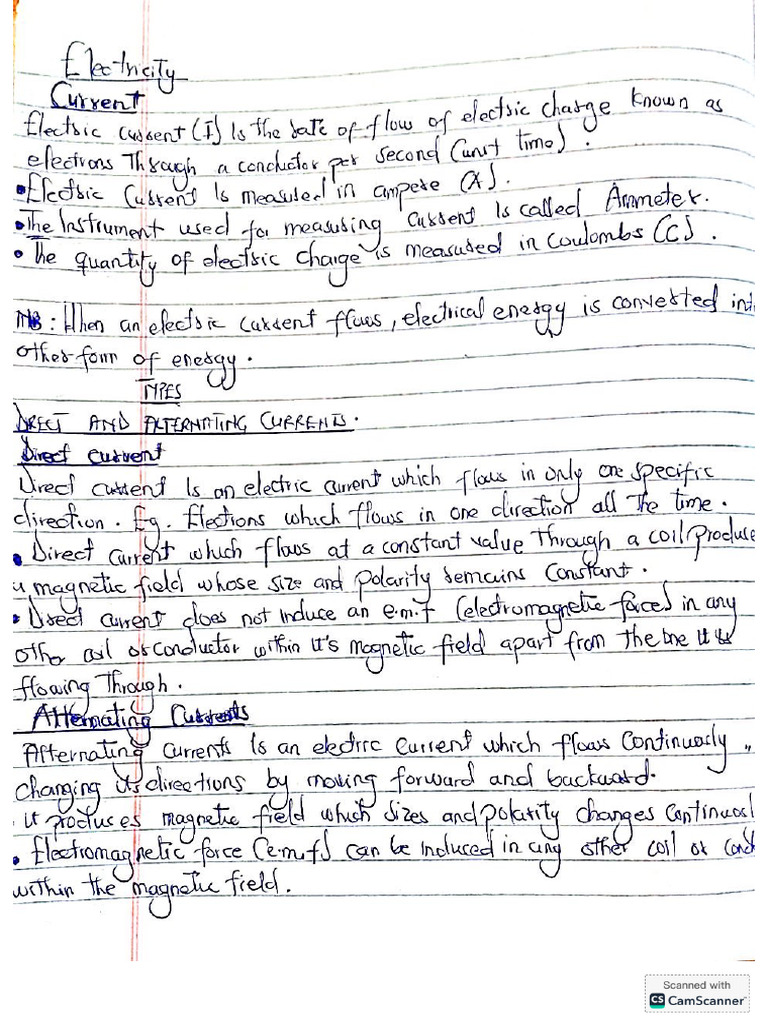 Electricity
Current
Electric current (I) Is the rate of flow of electric charge known as
electrons Through a conductor per second (unit time).
•Electric Current Is measured in ampere (A).
•The Instrument used for measuring current Is called Ammeter.
• The quantity of electric charge is measured in Coulombs (C).
NB: When an electric current flows, electrical energy is converted int
other form of energy.
TYPES
DIRECT AND ALTERNATING CURRENTS.
Direct current
Direct current Is an electric current which flows in only one specific
direction. Eg. Elections which flows in one direction all The time.
• Direct current which flows at a constant value Through a coil produce
a magnetic field whose size and polarity remains Constant.
• Direct current does not induce an e.m.f (electromagnetic force) in any
other coil or conductor within It's magnetic field apart from the one It is
flowing Through.
Alternating Currents
Alternating currents Is an electric current which flows Continuously,
changing its directions by moving forward and backward.
. It produces magnetic field which sizes and polarity changes Continuousl
• Electromagnetic force (e.m.f) can be Induced in any other coil or cond
within the magnetic field.
Scanned with
CS CamScanner